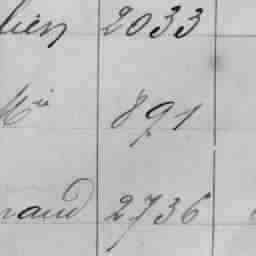 lien 2033
Mie 891
raud 2736